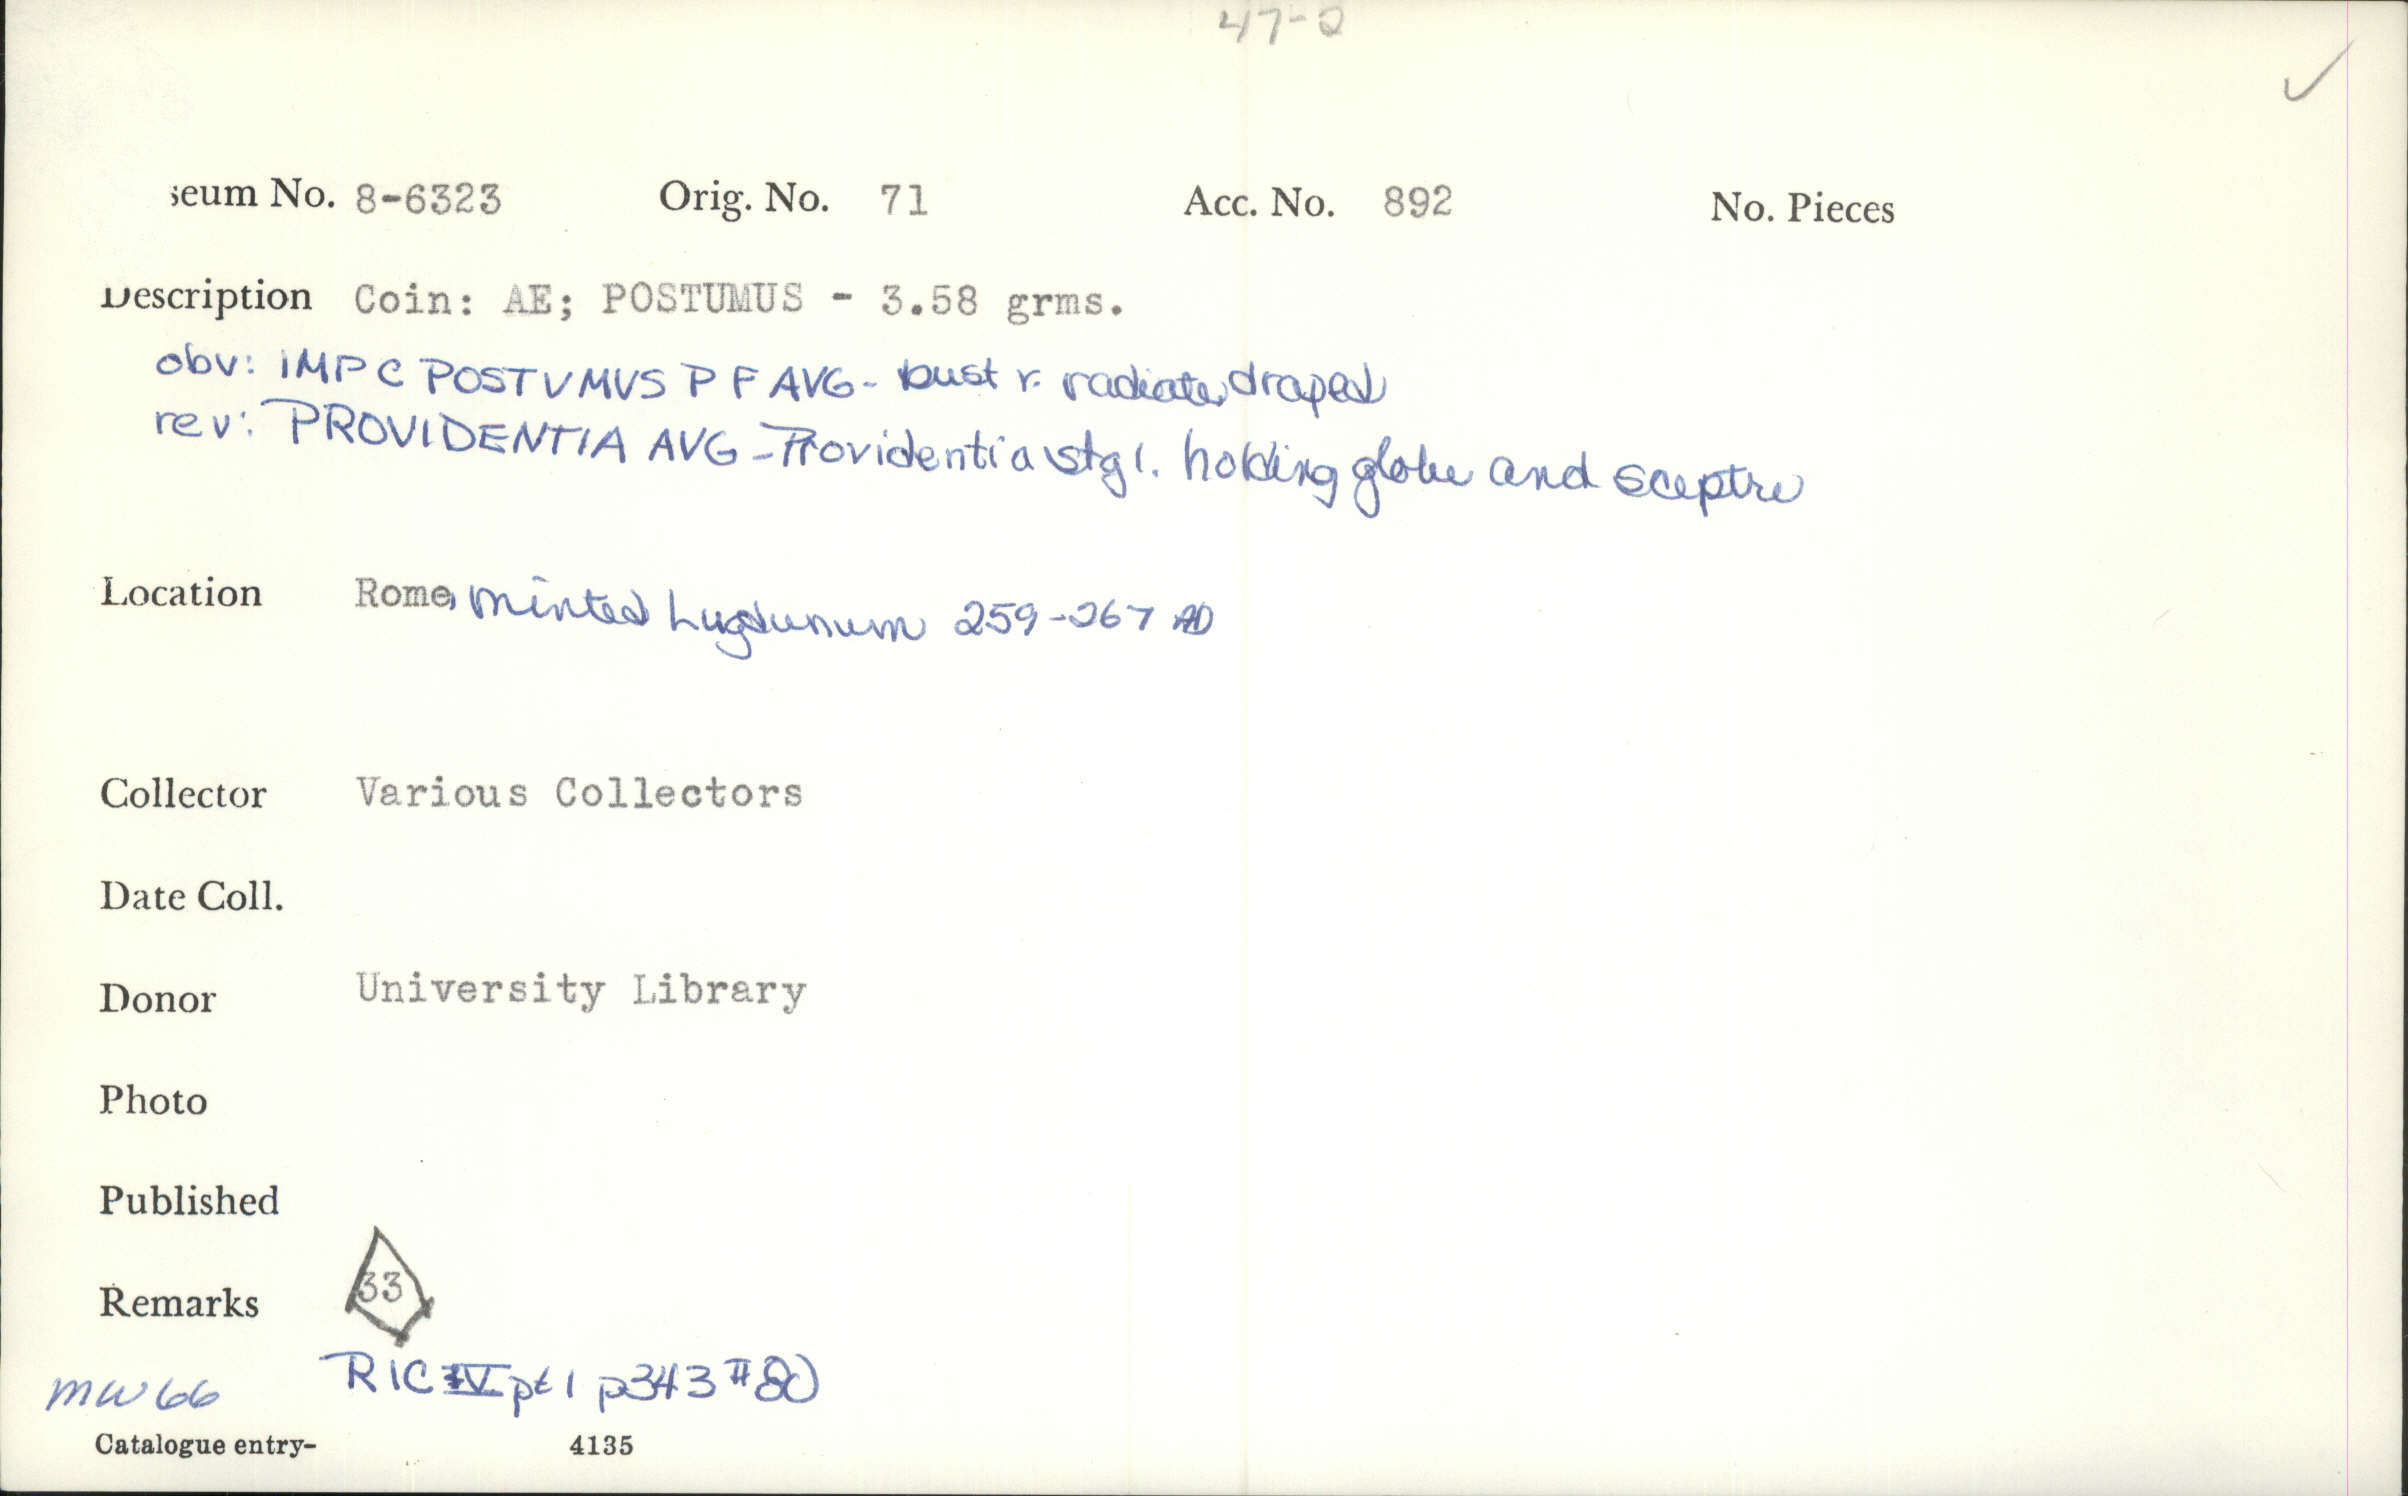 47-2
seum No. 8-6323 Orig. No. 71 Acc. No. 892 No. Pieces
Description Coin: AE; POSTUMUS - 3.58 grms.
obv: IMP C POSTVMVS P F AVG - bust r. radiate, draped
rev: PROVIDENTIA AVG - Providentia stg l. holding globe and sceptre
Location Rome, minted Lugdunum 259-267 AD
Collector Various Collectors
Date Coll.
Donor University Library
Photo
Published
Remarks 33
RIC V pt 1 p343 #80
MW 66
Catalogue entry- 4135